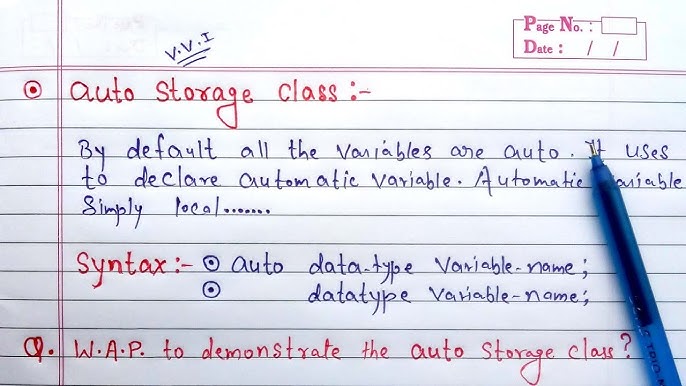 Page No. :
Date : / /
V.V.I
auto Storage Class :-
By default all the variables are auto. It uses
to declare automatic variable. Automatic variable
Simply local.......
Syntax :- auto data-type variable-name;
datatype variable-name;
Q. W.A.P. to demonstrate the auto storage class?